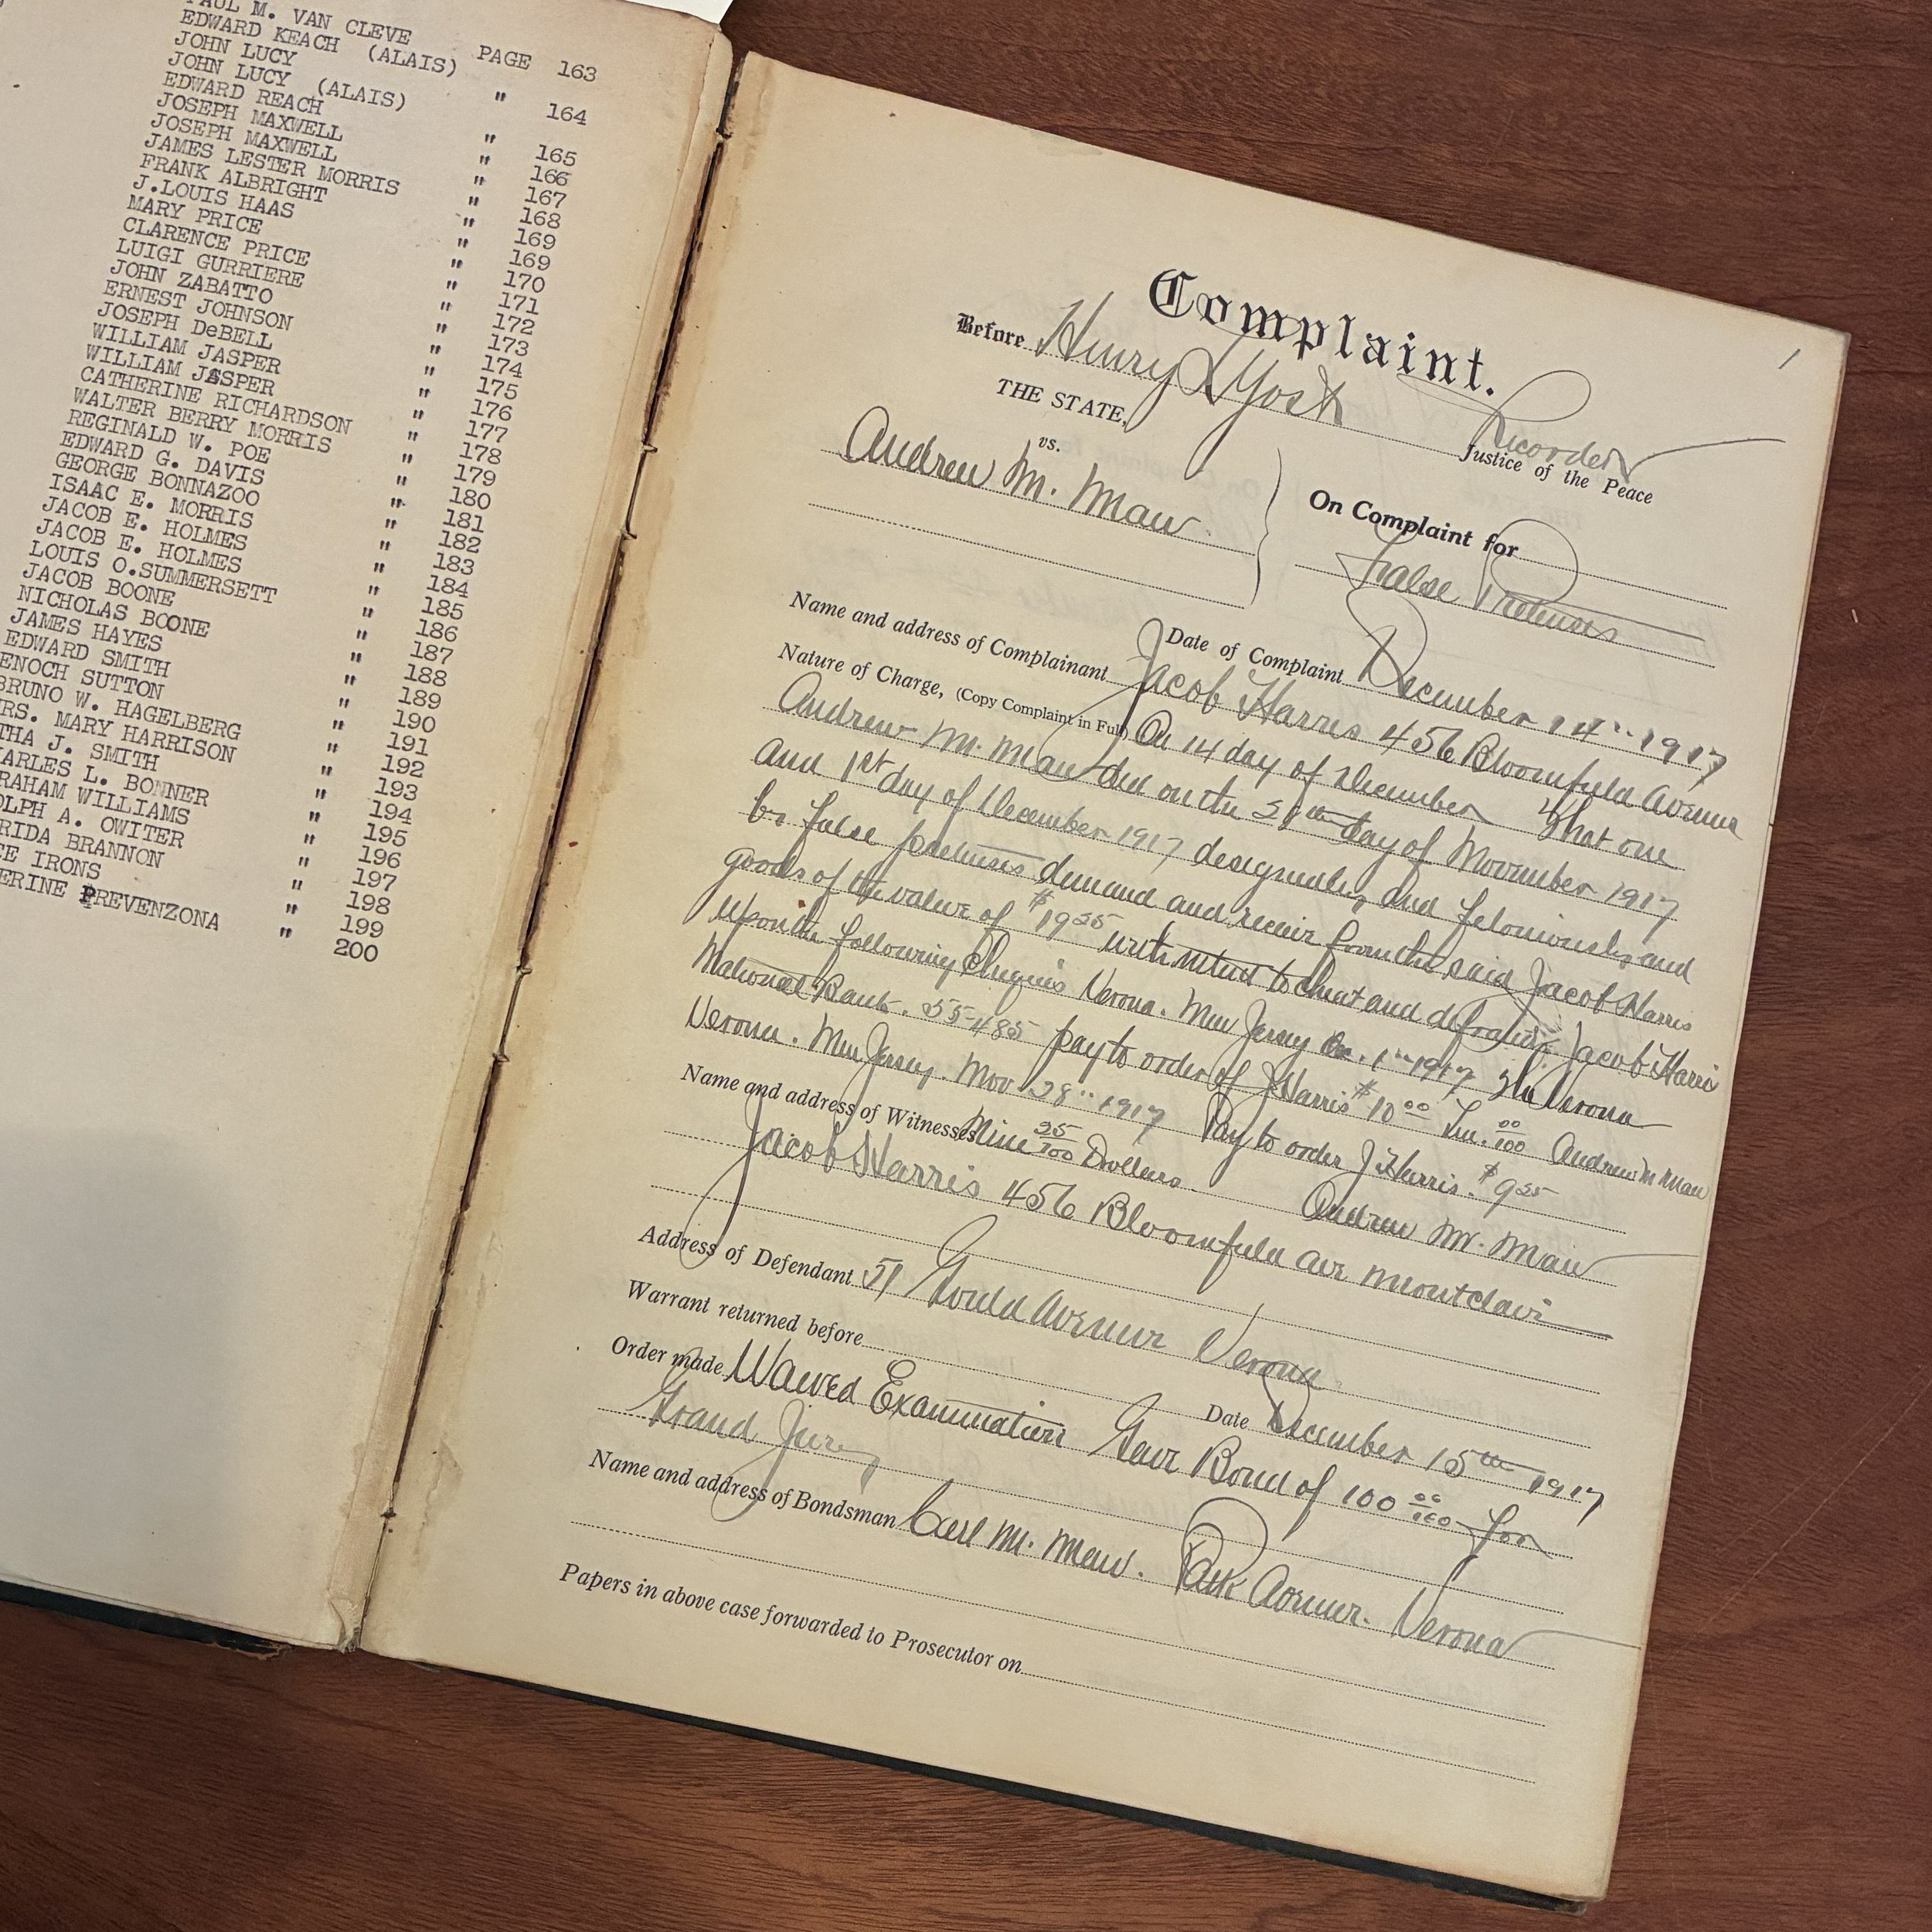 PAUL M. VAN CLEVE PAGE 163
EDWARD KEACH (ALAIS)
JOHN LUCY " 164
JOHN LUCY (ALAIS)
EDWARD REACH " 165
JOSEPH MAXWELL " 166
JOSEPH MAXWELL " 167
JAMES LESTER MORRIS " 168
FRANK ALBRIGHT " 169
J.LOUIS HAAS " 169
MARY PRICE " 170
CLARENCE PRICE " 171
LUIGI GURRIERE " 172
JOHN ZABATTO " 173
ERNEST JOHNSON " 174
JOSEPH DeBELL " 175
WILLIAM JASPER " 176
WILLIAM JASPER " 177
CATHERINE RICHARDSON " 178
WALTER BERRY MORRIS " 179
REGINALD W. POE " 180
EDWARD G. DAVIS " 181
GEORGE BONNAZOO " 182
ISAAC E. MORRIS " 183
JACOB E. HOLMES " 184
JACOB E. HOLMES " 185
LOUIS O.SUMMERSETT " 186
JACOB BOONE " 187
NICHOLAS BOONE " 188
JAMES HAYES " 189
EDWARD SMITH " 190
ENOCH SUTTON " 191
BRUNO W. HAGELBERG " 192
RS. MARY HARRISON " 193
THA J. SMITH " 194
ARLES L. BONNER " 195
RAHAM WILLIAMS " 196
OLPH A. OWITER " 197
RIDA BRANNON " 198
CE IRONS " 199
ERINE PREVENZONA " 200
1
Complaint.
Before Henry L Yost Recorder
Justice of the Peace
THE STATE,
vs.
Andrew M. Maw.
On Complaint for
False Pretenses
Date of Complaint December 14th 1917
Name and address of Complainant Jacob Harris 456 Bloomfield Avenue
Nature of Charge, (Copy Complaint in Full) On 14 day of December That one
Andrew M. Maw did on the 28th day of November 1917
and 1st day of December 1917 designedly and feloniously and
by false pretenses demand and receive from the said Jacob Harris
goods of the value of $19 25 with intent to cheat and defraud Jacob Harris
upon the following cheques Verona. New Jersey Dec. 1st 1917 The Verona
National Bank. 55-485 pay to order of J Harris $10 00 Ten. 00/100 Andrew M Maw
Verona. New Jersey. Nov. 28th 1917 Pay to order J Harris. $9 25
Nine 25/100 Dollars. Andrew M. Maw
Name and address of Witnesses
Jacob Harris 456 Bloomfield ave Montclair
Address of Defendant 51 Gould Avenue Verona.
Warrant returned before
Date December 15th 1917
Order made Waived Examination Gave Bond of 100 00/100 for
Grand Jury
Name and address of Bondsman Carl M. Maw. Park Avenue. Verona
Papers in above case forwarded to Prosecutor on